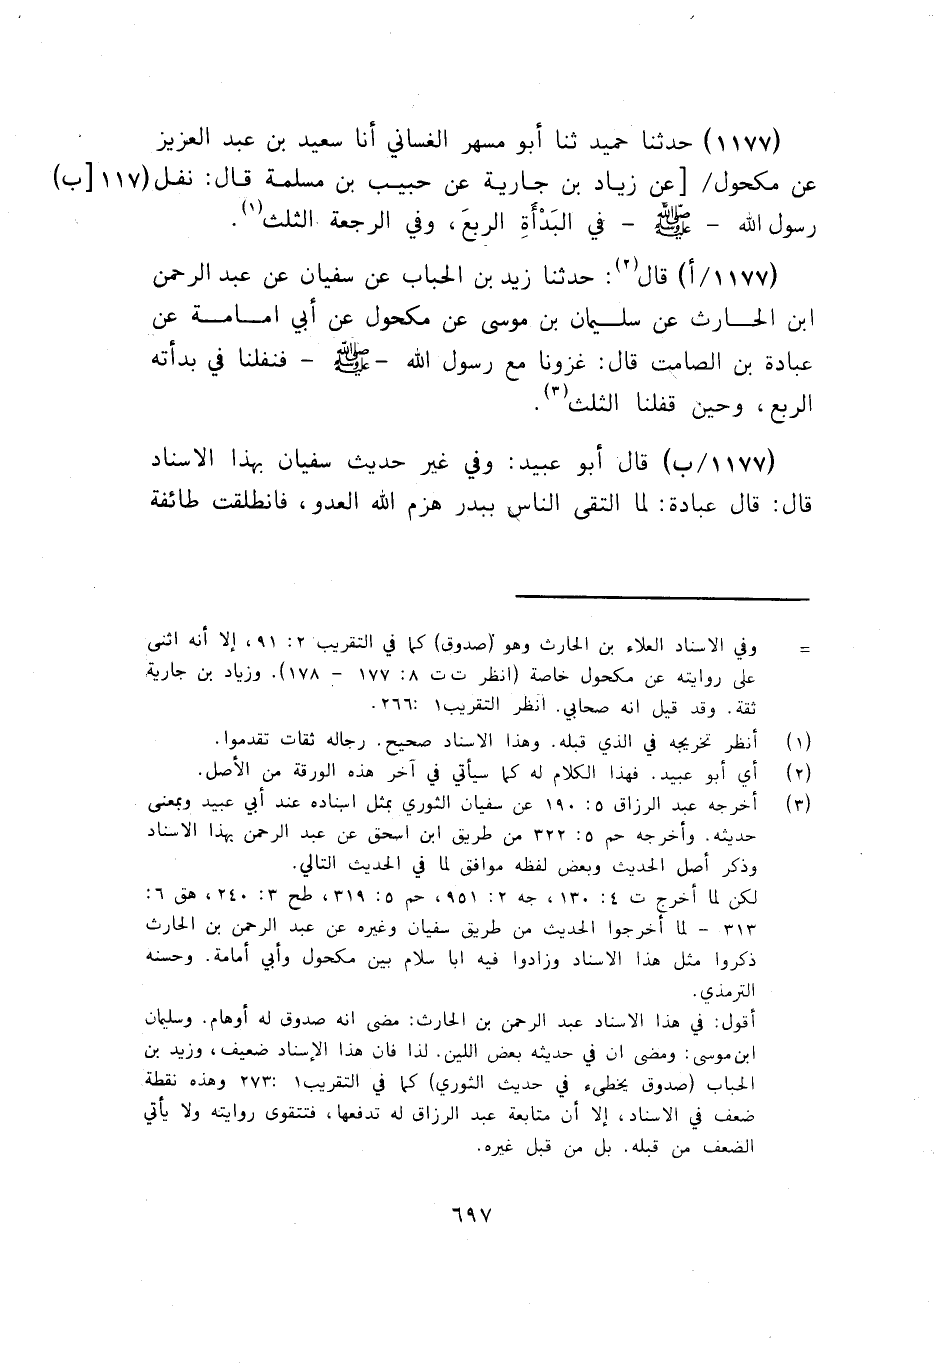 (١١٧٧) حدثنا حميد ثنا أبو مسهر الغساني أنا سعيد بن عبد العزيز
عن مكحول/ [عن زياد بن جارية عن حبيب بن مسلمة قال: نفل (١١٧[ب)
رسول الله - ﷺ - في البَدْأَةِ الربعَ، وفي الرجعة الثلث(١).
(١١٧٧/أ) قال(٢): حدثنا زيد بن الحباب عن سفيان عن عبد الرحمن
ابن الحارث عن سليمان بن موسى عن مكحول عن أبي امامة عن
عبادة بن الصامت قال: غزونا مع رسول الله - ﷺ - فنفلنا في بدأته
الربع، وحين قفلنا الثلث(٣).
(١١٧٧/ب) قال أبو عبيد: وفي غير حديث سفيان بهذا الاسناد
قال: قال عبادة: لما التقى الناس ببدر هزم الله العدو، فانطلقت طائفة
= وفي الاسناد العلاء بن الحارث وهو (صدوق) كما في التقريب ٢: ٩١، إلا أنه اثنى
على روايته عن مكحول خاصة (انظر ت ت ٨: ١٧٧ - ١٧٨). وزياد بن جارية
ثقة. وقد قيل انه صحابي. انظر التقريب١ :٢٦٦.
(١) أنظر تخريجه في الذي قبله. وهذا الاسناد صحيح. رجاله ثقات تقدموا.
(٢) أي أبو عبيد. فهذا الكلام له كما سيأتي في آخر هذه الورقة من الأصل.
(٣) أخرجه عبد الرزاق ٥: ١٩٠ عن سفيان الثوري بمثل اسناده عند أبي عبيد وبمعنى
حديثه. وأخرجه حم ٥: ٣٢٢ من طريق ابن اسحق عن عبد الرحمن بهذا الاسناد
وذكر أصل الحديث وبعض لفظه موافق لما في الحديث التالي.
لكن لما أخرج ت ٤: ١٣٠، جه ٢: ٩٥١، حم ٥: ٣١٩، طح ٣: ٢٤٠، هق ٦:
٣١٣ - لما أخرجوا الحديث من طريق سفيان وغيره عن عبد الرحمن بن الحارث
ذكروا مثل هذا الاسناد وزادوا فيه ابا سلام بين مكحول وأبي أمامة. وحسنه
الترمذي.
أقول: في هذا الاسناد عبد الرحمن بن الحارث: مضى انه صدوق له أوهام. وسليمان
ابن موسى: ومضى ان في حديثه بعض اللين. لذا فان هذا الإسناد ضعيف، وزيد بن
الحباب (صدوق يخطىء في حديث الثوري) كما في التقريب١ :٢٧٣ وهذه نقطة
ضعف في الاسناد، إلا أن متابعة عبد الرزاق له تدفعها، فتتقوى روايته ولا يأتي
الضعف من قبله. بل من قبل غيره.
٦٩٧